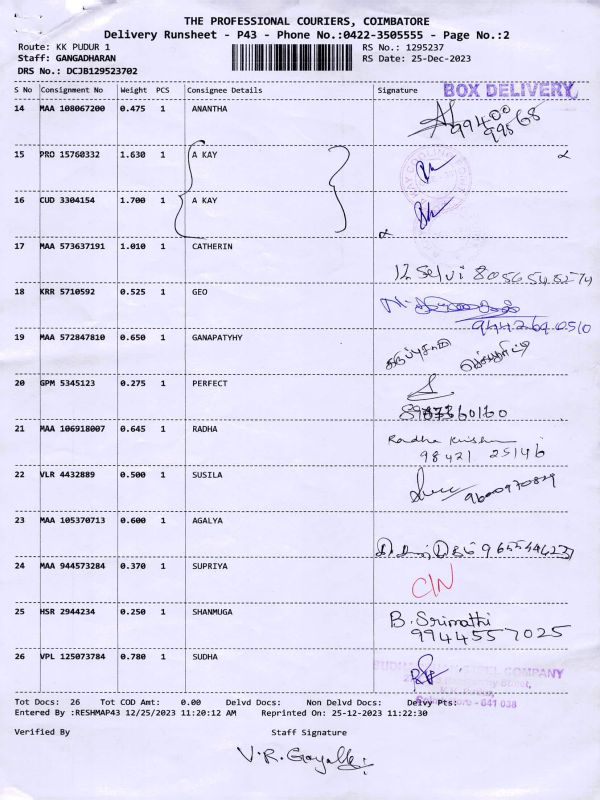 THE PROFESSIONAL COURIERS, COIMBATORE
Delivery Runsheet - P43 - Phone No.:0422-3505555 - Page No.:2
Route: KK PUDUR 1 RS No.: 1295237
Staff: GANGADHARAN RS Date: 25-Dec-2023
DRS No.: DCJB129523702
S No Consignment No Weight PCS Consignee Details Signature BOX DELIVERY
14 MAA 108067200 0.475 1 ANANTHA
99400
99568
15 PRO 15760332 1.630 1 A KAY
16 CUD 3304154 1.700 1 A KAY
17 MAA 573637191 1.010 1 CATHERIN
Selvi 8056548274
18 KRR 5710592 0.525 1 GEO
944269 0510
19 MAA 572847810 0.650 1 GANAPATYHY
20 GPM 5345123 0.275 1 PERFECT
21 MAA 106918007 0.645 1 RADHA
Radha Krishn
98421 25146
22 VLR 4432889 0.500 1 SUSILA
9600970829
23 MAA 105370713 0.600 1 AGALYA
24 MAA 944573284 0.370 1 SUPRIYA
C/N
25 HSR 2944234 0.250 1 SHANMUGA
B. Srimathi
9944557025
26 VPL 125073784 0.780 1 SUDHA
STEEL COMPANY
Street,
Coimbatore - 641 038
Tot Docs: 26 Tot COD Amt: 0.00 Delvd Docs: Non Delvd Docs: Delvy Pts:
Entered By :RESHMAP43 12/25/2023 11:20:12 AM Reprinted On: 25-12-2023 11:22:30
Verified By Staff Signature
V.R.